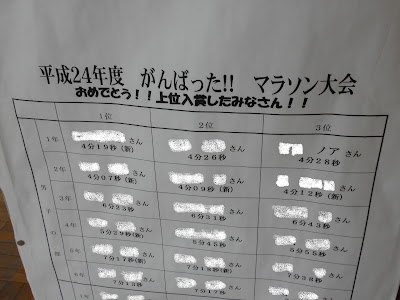 平成24年度 がんばった!! マラソン大会
おめでとう!!上位入賞したみなさん!!
1位 2位 3位
1年 さん さん ノア さん
4分19秒(新) 4分26秒 4分28秒
2年 さん さん さん
4分07秒(新) 4分09秒(新) 4分12秒(新)
男子の部
3年 さん さん さん
6分25秒 6分31秒 6分43秒
4年 さん さん さん
5分29秒(新) 5分45秒 5分55秒
5年 さん さん さん
7分17秒(新) 7分18秒(新) 7分38秒
さん さん
7分17秒